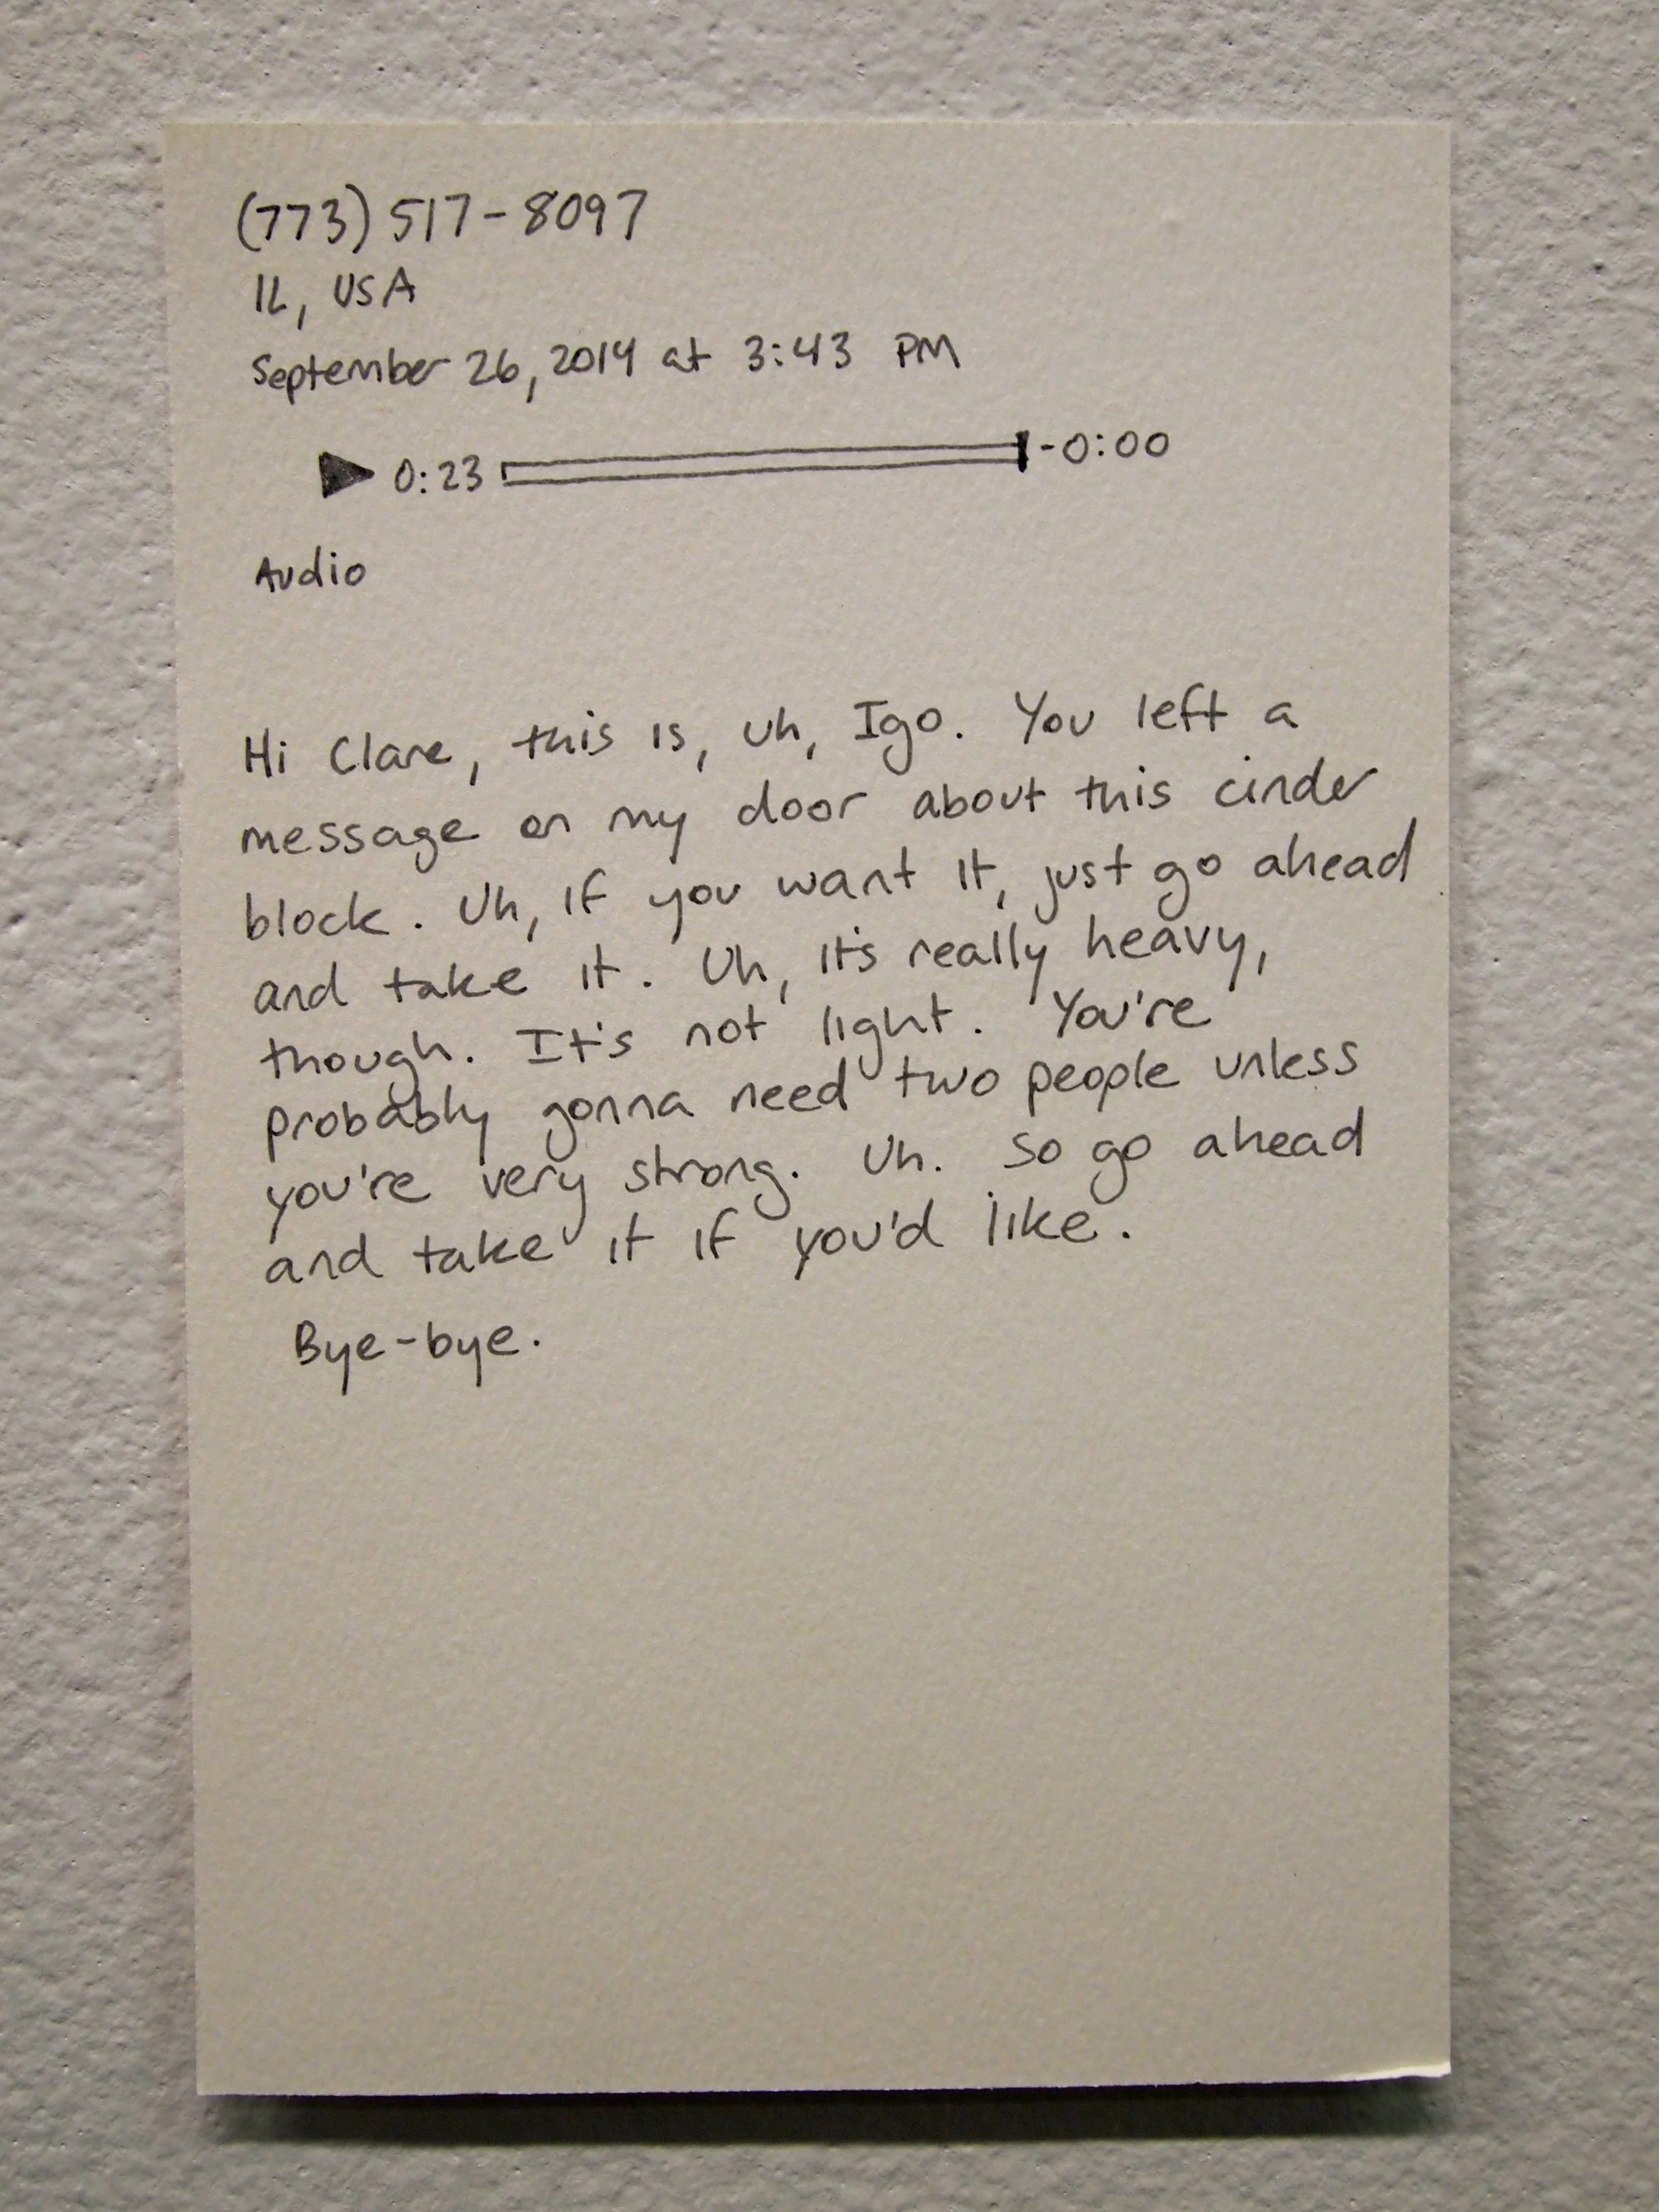 (773) 517-8097
IL, USA
September 26, 2014 at 3:43 PM
0:23 -0:00
Audio
Hi Clare, this is, uh, Igo. You left a
message on my door about this cinder
block. Uh, if you want it, just go ahead
and take it. Uh, it's really heavy,
though. It's not light. You're
probably gonna need two people unless
you're very strong. Uh. So go ahead
and take it if you'd like.
Bye-bye.